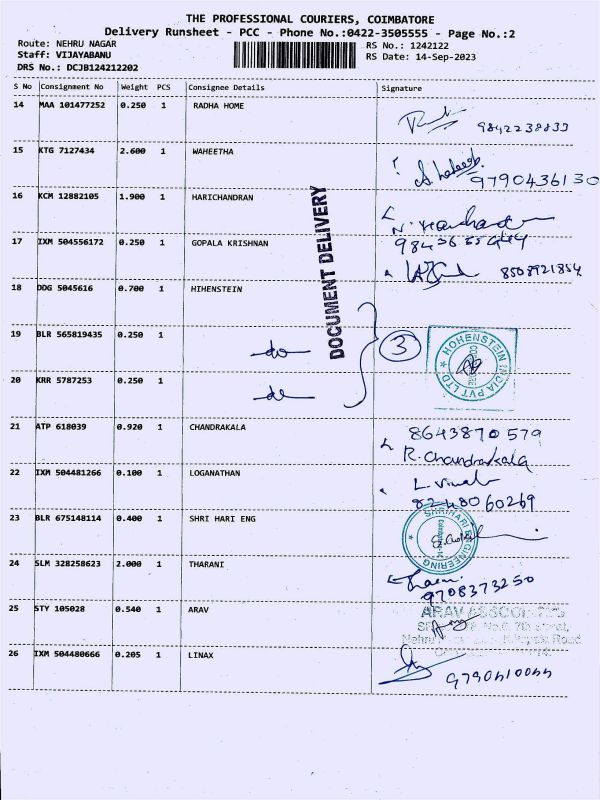 THE PROFESSIONAL COURIERS, COIMBATORE
Delivery Runsheet - PCC - Phone No.:0422-3505555 - Page No.:2
Route: NEHRU NAGAR
Staff: VIJAYABANU
DRS No.: DCJB124212202
RS No.: 1242122
RS Date: 14-Sep-2023
S No Consignment No Weight PCS Consignee Details Signature
14 MAA 101477252 0.250 1 RADHA HOME
9842238833
15 KTG 7127434 2.600 1 WAHEETHA
9790436130
16 KCM 12882105 1.900 1 HARICHANDRAN
17 IXM 504556172 0.250 1 GOPALA KRISHNAN
8508921854
DOCUMENT DELIVERY
18 DDG 5045616 0.700 1 HIHENSTEIN
19 BLR 565819435 0.250 1 -do-
3
HOHENSTEIN INDIA PVT LTD
20 KRR 5787253 0.250 1 -do-
21 ATP 618039 0.920 1 CHANDRAKALA
8643870579
R. Chandrakala
22 IXM 504481266 0.100 1 LOGANATHAN
8248060269
23 BLR 675148114 0.400 1 SHRI HARI ENG
SHRI HARI ENGINEERING
24 SLM 328258623 2.000 1 THARANI
9708373250
25 STY 105028 0.540 1 ARAV
ARAV
26 IXM 504480666 0.205 1 LINAX